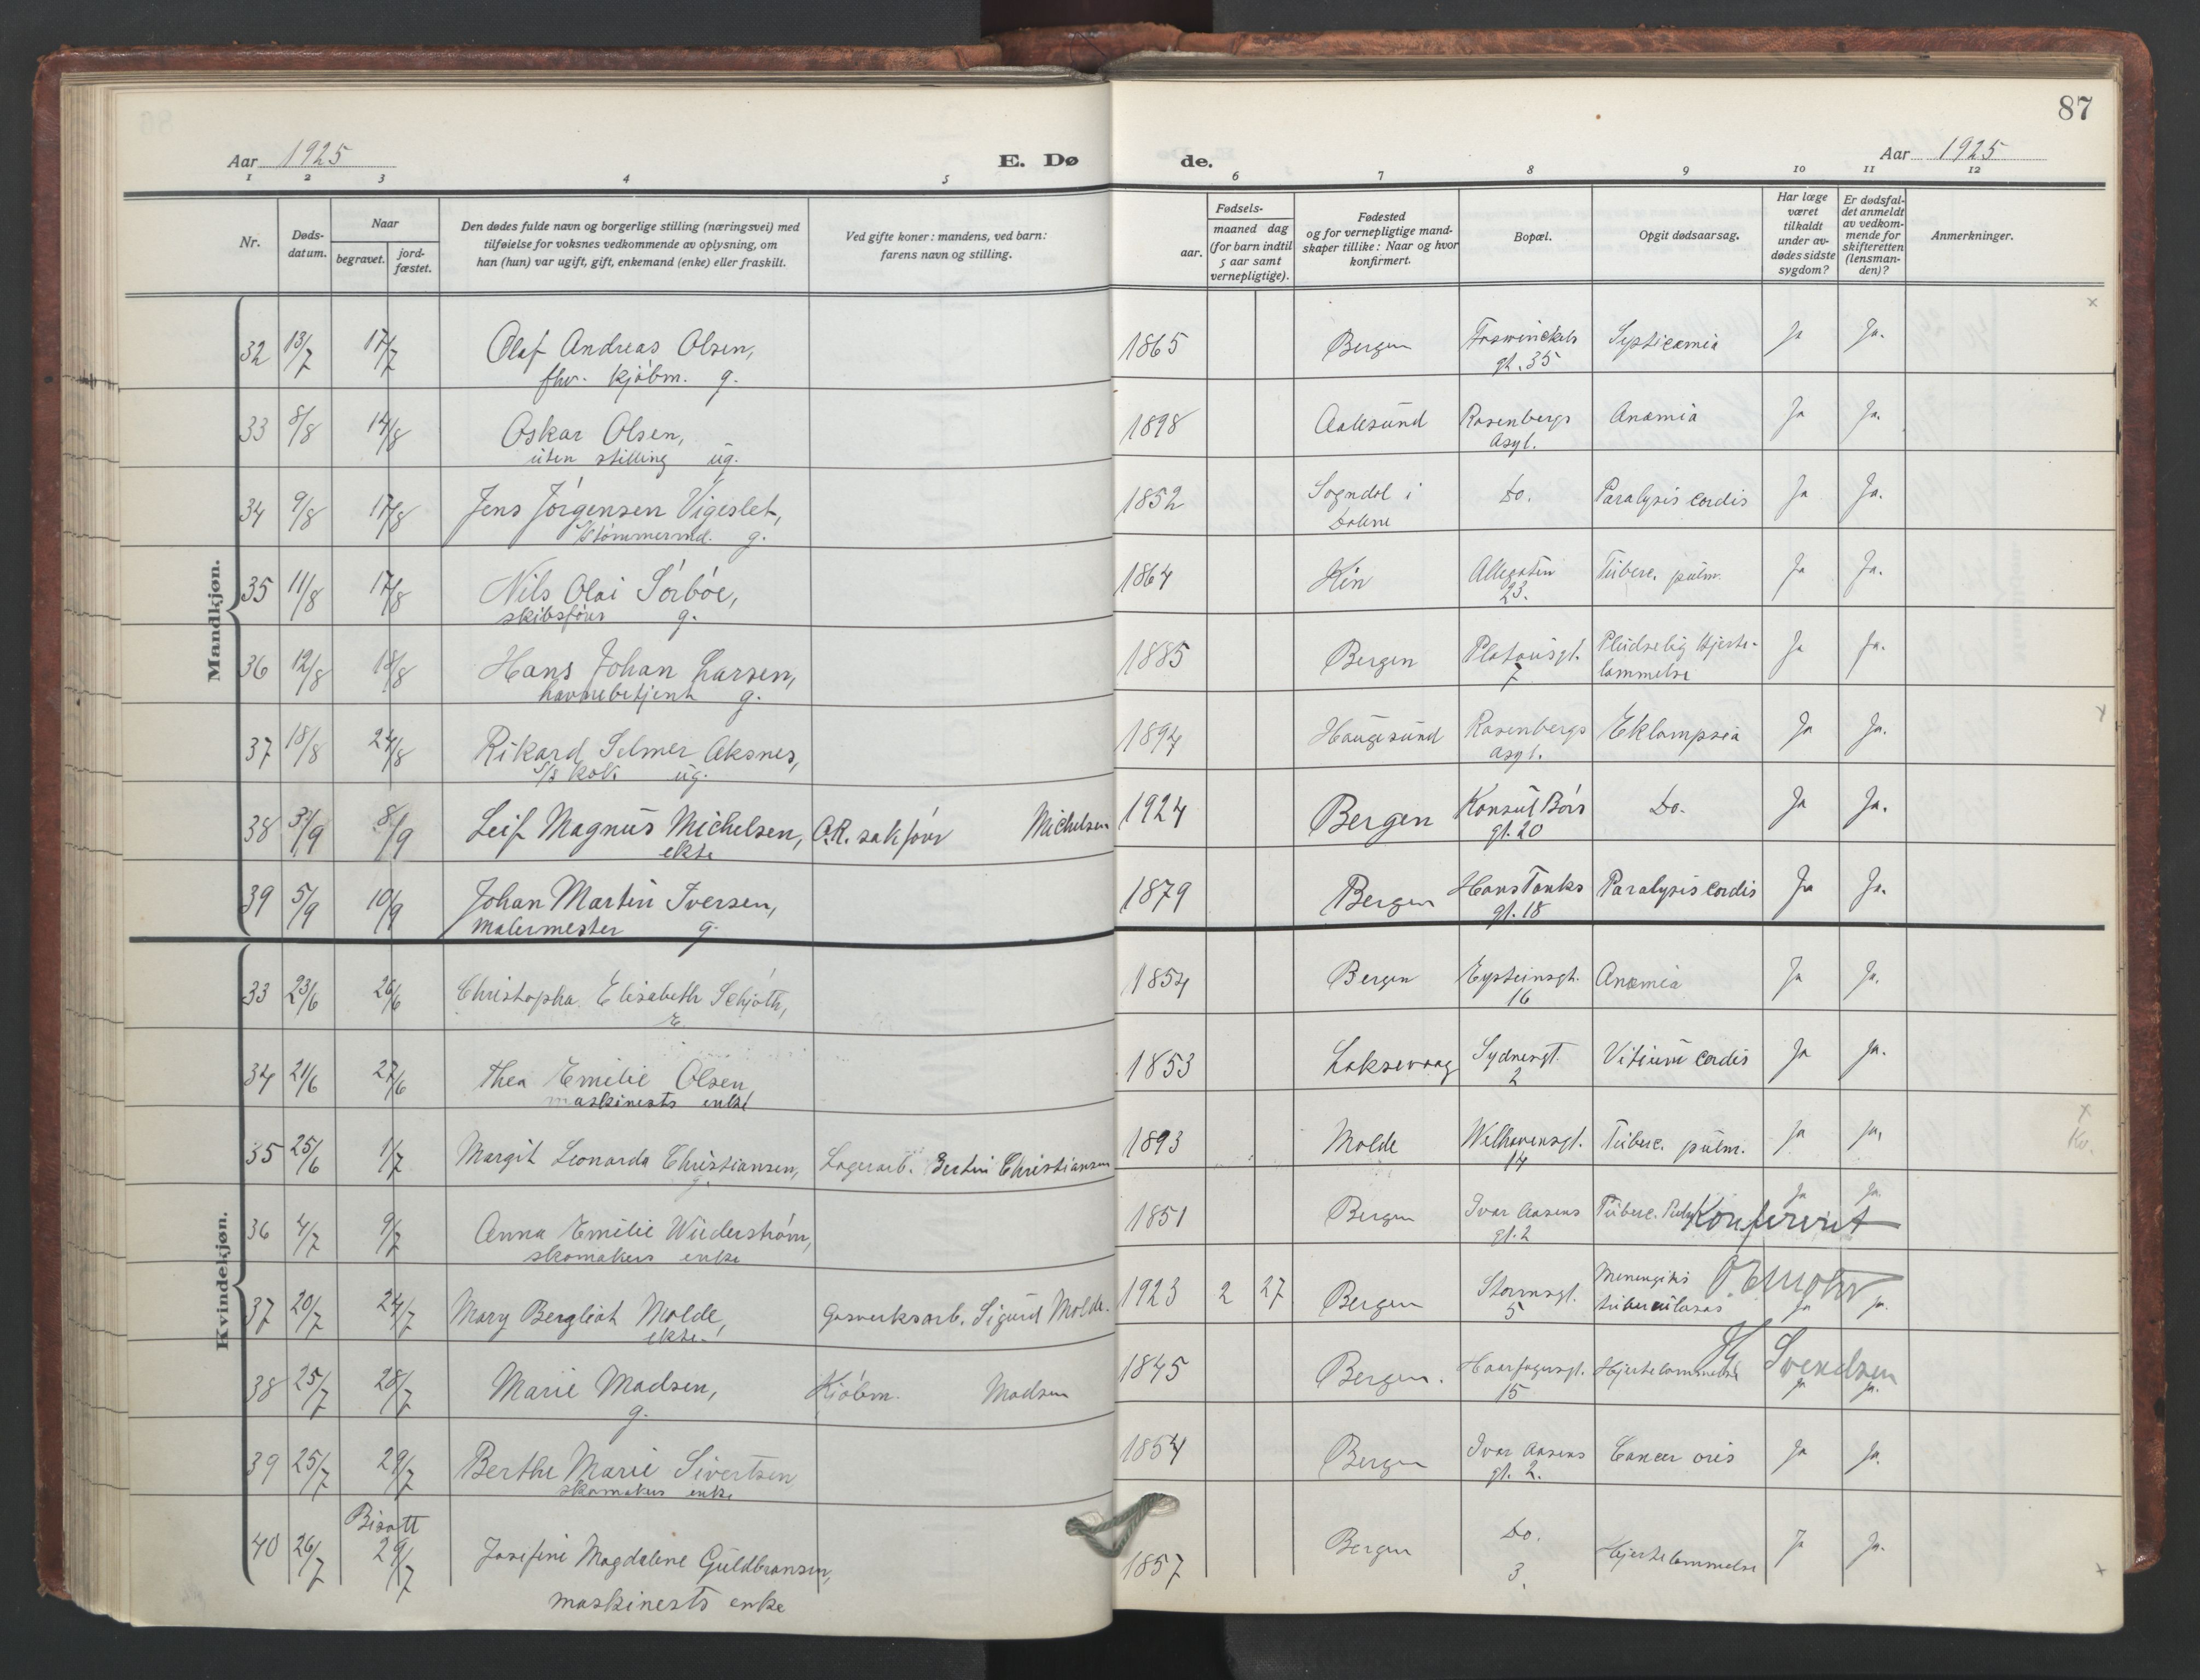 87
Aar 1925
E. Dø
de.
Aar 1925
1 2 3 4 5 6 7 8 9 10 11 12
Nr.
Døds-
datum.
Naar
begravet.
jord-
fæstet.
Den dødes fulde navn og borgerlige stilling (næringsvei) med
tilføielse for voksnes vedkommende av oplysning, om
han (hun) var ugift, gift, enkemand (enke) eller fraskilt.
Ved gifte koner: mandens, ved barn:
farens navn og stilling.
Fødsels-
aar.
maaned dag
(for barn indtil
5 aar samt
vernepligtige).
Fødested
og for vernepligtige mand-
skaper tillike: Naar og hvor
konfirmert.
Bopæl.
Opgit dødsaarsag.
Har læge
været
tilkaldt
under av-
dødes sidste
sygdom?
Er dødsfal-
det anmeldt
av vedkom-
mende for
skifteretten
(lensman-
den)?
Anmerkninger.
Mandkjøn.
32 13/7 17/7 Olaf Andreas Olsen, 1865 Bergen Septicæmia Ja Ja.
fhv. kjøbm. g. gt. 35
33 8/8 14/8 Oskar Olsen, 1898 Aalesund Rosenbergs Anæmia Ja Ja.
uten stilling ug. Asyl.
34 9/8 17/8 Jens Jørgensen Vigeslet, 1852 Sogndal i Do. Paralysis cordis Ja Ja.
tømmermd. g. Dalene
35 11/8 17/8 Nils Olai Sørbøe, 1864 Kin Allegaten Tuberc. pulm. Ja Ja.
skibsfører g. 23.
36 12/8 18/8 Hans Johan Larsen, 1885 Bergen Platousgt. Pludselig Hjerte- Ja Ja.
havnebetjent g. 7 lammelse
37 18/8 24/8 Rikard Selmer Aksnes, 1894 Haugesund Rosenbergs Eklampsia Ja Ja.
s/s kok ug. Asyl.
38 3/9 8/9 Leif Magnus Michelsen, O.R. sakfører Michelsen 1924 Bergen Konsul Børs Do. Ja Ja.
ekte gt. 20
39 5/9 10/9 Johan Martin Iversen, 1879 Bergen Hans Tanks Paralysis cordis Ja Ja.
malermester g. gt. 18
Kvindekjøn.
33 23/6 26/6 Christopha Elisabeth Schjøth, 1854 Bergen Eysteinsgt. Anæmia Ja Ja.
E. 16
34 21/6 27/6 Thea Emilie Olsen, 1853 Laksevaag Sydnesgt. Vitium cordis Ja Ja.
maskinests enke 2
35 25/6 1/7 Margit Leonarda Christiansen, Lagerarb. Bertin Christiansen 1893 Molde Welhavensgt. Tuberc. pulm. Ja Ja.
g. 14
36 4/7 9/7 Anna Emilie Wiederstrøm, 1851 Bergen Ivar Aasens Tuberc. Pulm. Ja Ja.
skomakers enke gt. 2
Konferert
37 20/7 24/7 Mary Bergliot Molde, Gasverksarb. Sigurd Molde. 1923 2 27 Bergen Stormsgt. Meningitis Ja Ja.
ekte. 5 tuberculosas
38 25/7 28/7 Marie Madsen, Kjøbm. Madsen 1845 Bergen. Haarfagersgt. Hjertelammelse Ja Ja.
g. 15
Svendsen
39 25/7 29/7 Berthe Marie Sivertsen 1854 Bergen Ivar Aasens Cancer oris Ja Ja.
skomakers enke gt. 2.
Bisatt
40 26/7 29/7 Josefine Magdalene Guldbransen, 1857 Bergen Do. Hjertelammelse Ja Ja.
maskinests enke 3.